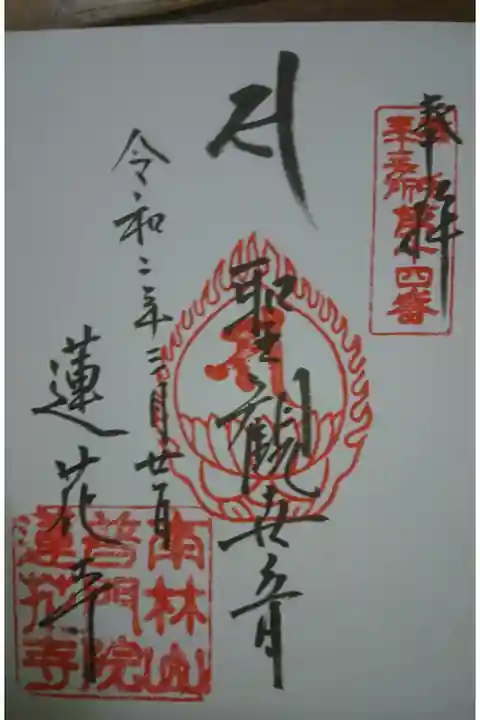 奉拝
聖観世音
令和二年三月廿一日
蓮花寺
南林山
普門院
蓮花寺